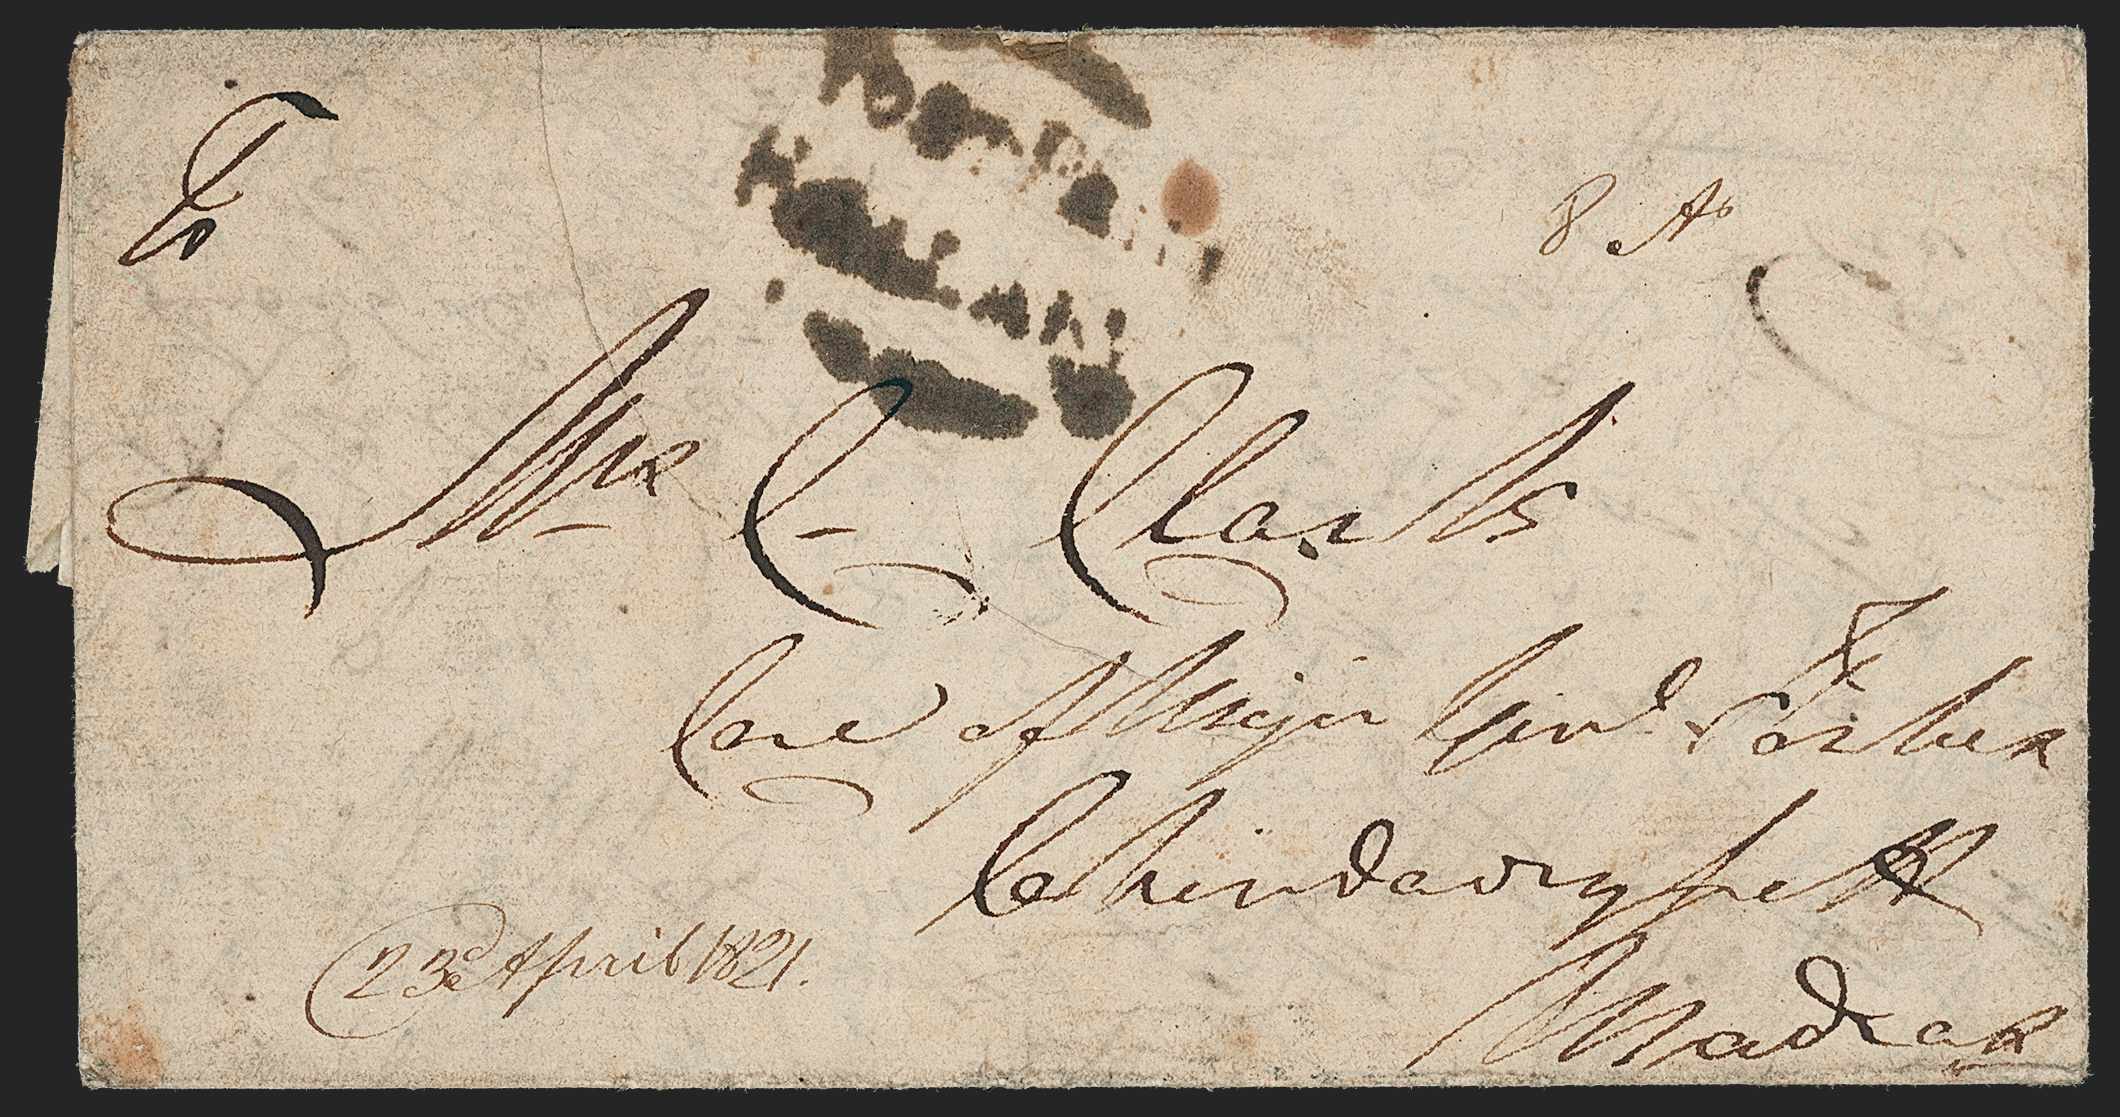 To
8 As
Mrs C Clark
Care of Major Genl Forbes
Chindadrypett
Madras
23d April 1821.